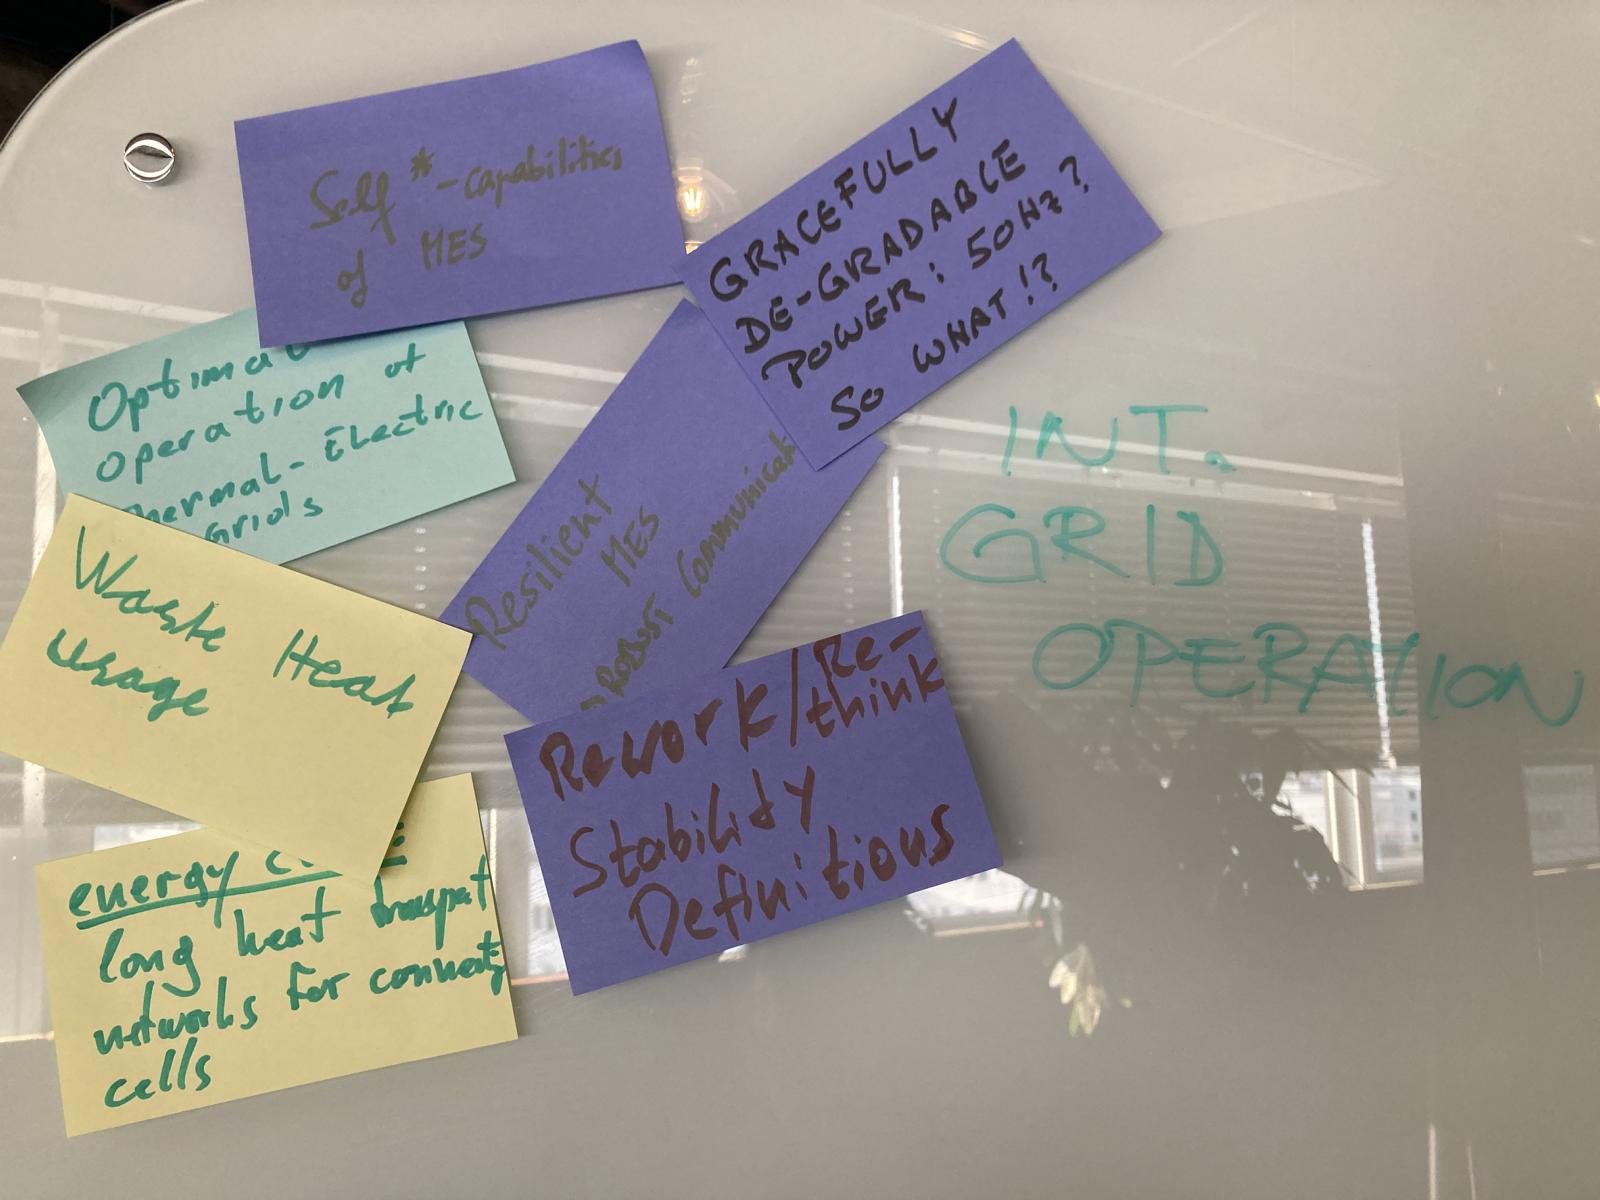 Self*-capabilities
of MES
GRACEFULLY
DE-GRADABLE
POWER: 50Hz?
SO WHAT!?
Optimal
operation of
Thermal-Electric
Grids
Resilient
MES
ROBUST Communicat
INT.
GRID
OPERATION
Waste Heat
usage
Rework/Re-
think
Stability
Definitions
energy
long heat transport
networks for connecting
cells